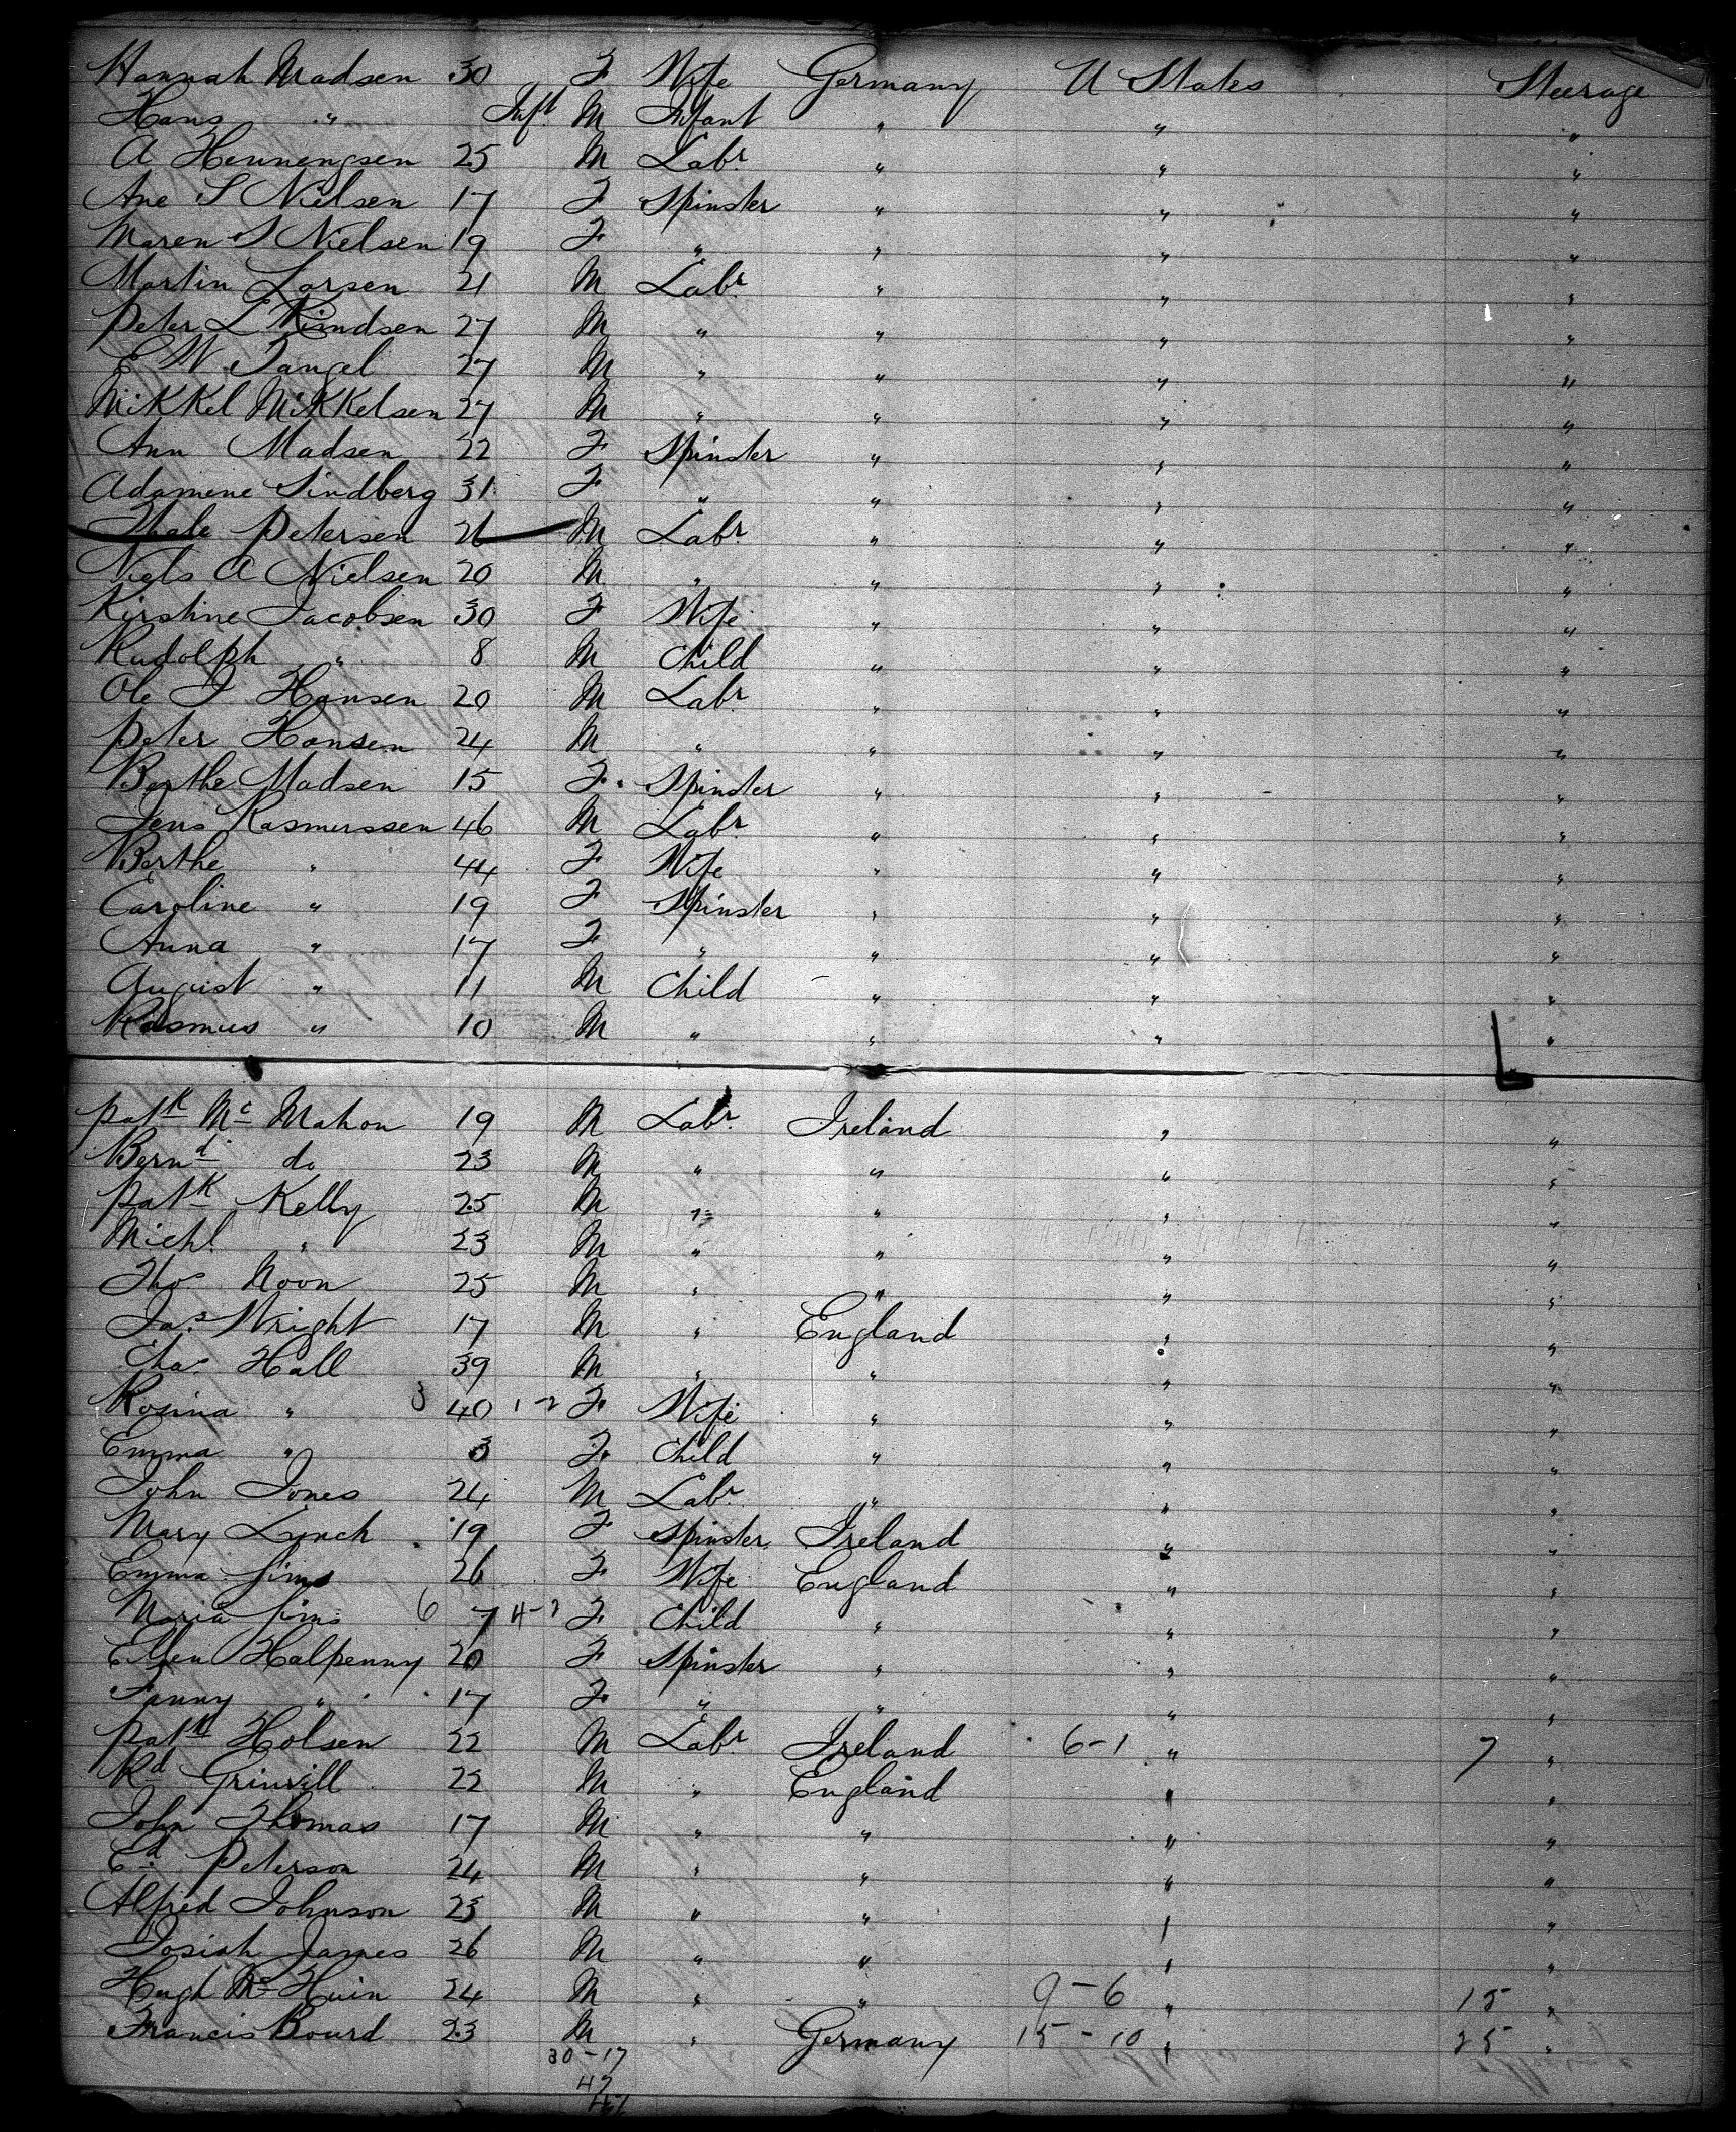 Hannah Madsen 30 F Wife Germany U States Steerage
Hans " Inft M Infant " " "
A Hennengsen 25 M Labr " " "
Ane S Nielsen 17 F Spinster " " "
Maren S Nielsen 19 F " " " "
Martin Larsen 21 M Labr " " "
Peter L 27 M " " " "
E W Tangel 27 M " " " "
Mikkel Mikkelsen 27 M " " " "
Ann Madsen 22 F Spinster " " "
Adamene Lindberg 31 F " " " "
Petersen 26 M Labr " " "
Niels A Nielsen 20 M " " " "
Kirstine Jacobsen 30 F Wife " " "
Rudolph " 8 M Child " " "
Ole J Hansen 20 M Labr " " "
Peter Hansen 24 M " " " "
Berthe Madsen 15 F. Spinster " " "
Jens Rasmurssen 46 M Labr " " "
Berthe " 44 F Wife " " "
Caroline " 19 F Spinster " " "
Anna " 17 F " " " "
August " 11 M Child " " "
Rasmus " 10 M " " " "
Patk Mc Mahon 19 M Labr Ireland " "
Bernd do 23 M " " " "
Patk Kelly 25 M " " " "
Michl " 23 M " " " "
Thos Noon 25 M " " " "
Jas Wright 17 M " England " "
Chas Hall 39 M " " " "
Rosina " 3 40 1-2 F Wife " " "
Emma " 3 F Child " " "
John Jones 24 M Labr " " "
Mary Lynch 19 F Spinster Ireland " "
Emma Sims 26 F Wife England " "
Maria Sims 6 7 4-2 F Child " " "
Ellen Halpenny 20 F Spinster " " "
Fanny " 17 F " " " "
Patk Holsen 22 M Labr Ireland 6-1 " 7 "
Rd Grinvill 22 M " England " "
John Thomas 17 M " " " "
Ed Peterson 24 M " " " "
Alfred Johnson 23 M " " " "
Josiah James 26 M " " " "
Hugh Mc Huin 24 M " " 9-6 " 15 "
Francis Bourd 23 M " Germany 15-10 " 25 "
30-17
47